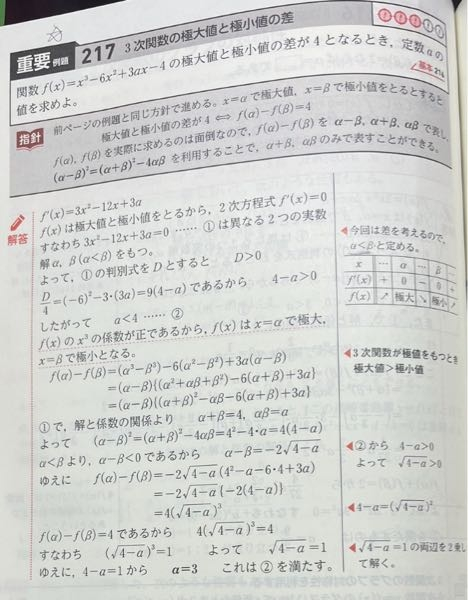 重要 例題 217 3次関数の極大値と極小値の差
関数 f(x)=x³-6x²+3ax-4 の極大値と極小値の差が4となるとき，定数 a の
値を求めよ。
基本 214
指針
前ページの例題と同じ方針で進める。x=α で極大値，x=β で極小値をとるとすると
極大値と極小値の差が4 ⟺ f(α)-f(β)=4
f(α), f(β) を実際に求めるのは面倒なので，f(α)-f(β) を α-β, α+β, αβ で表し，
(α-β)²=(α+β)²-4αβ を利用することで，α+β, αβ のみで表すことができる。
解答
f'(x)=3x²-12x+3a
f(x) は極大値と極小値をとるから，2次方程式 f'(x)=0
すなわち 3x²-12x+3a=0 …… ① は異なる2つの実数
解 α, β (α<β) をもつ。
よって，① の判別式を D とすると D>0
D/4=(-6)²-3·(3a)=9(4-a) であるから 4-a>0
したがって a<4 …… ②
f(x) の x³ の係数が正であるから，f(x) は x=α で極大，
x=β で極小となる。
f(α)-f(β)=(α³-β³)-6(α²-β²)+3a(α-β)
=(α-β){(α²+αβ+β²)-6(α+β)+3a}
=(α-β){(α+β)²-αβ-6(α+β)+3a}
① で，解と係数の関係より α+β=4, αβ=a
よって (α-β)²=(α+β)²-4αβ=4²-4·a=4(4-a)
α<β より，α-β<0 であるから α-β=-2√(4-a)
ゆえに f(α)-f(β)=-2√(4-a)(4²-a-6·4+3a)
=-2√(4-a){-2(4-a)}
=4(√(4-a))³
f(α)-f(β)=4 であるから 4(√(4-a))³=4
すなわち (√(4-a))³=1 よって √(4-a)=1
ゆえに，4-a=1 から a=3 これは ② を満たす。
◀今回は差を考えるので，
α<β と定める。
x … α … β …
f'(x) + 0 - 0 +
f(x) ↗ 極大 ↘ 極小 ↗
◀3次関数が極値をもつとき
極大値>極小値
◀② から 4-a>0
よって √(4-a)>0
◀4-a=(√(4-a))²
◀√(4-a)=1 の両辺を2乗し
て解く。